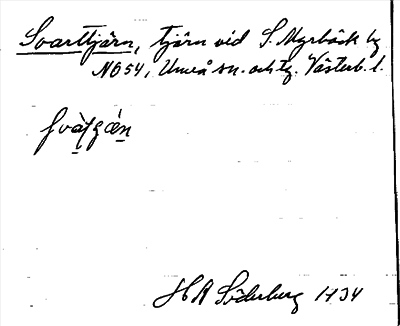 Svarttjärn, tjärn vid S. Myrbäck by
NB54, Umeå sn. och tg. Västerb. l.
H A Söderberg 1934